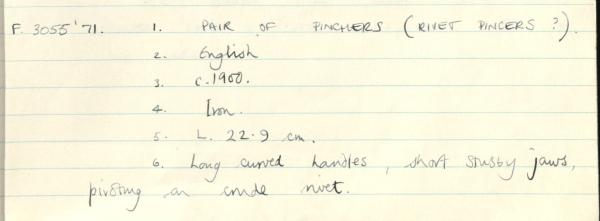 F. 3055'71. 1. PAIR OF PINCHERS (RIVET PINCERS ?).
2. English
3. c.1900.
4. Iron.
5. L. 22.9 cm.
6. Long curved handles, short stubby jaws,
pivoting on crude rivet.